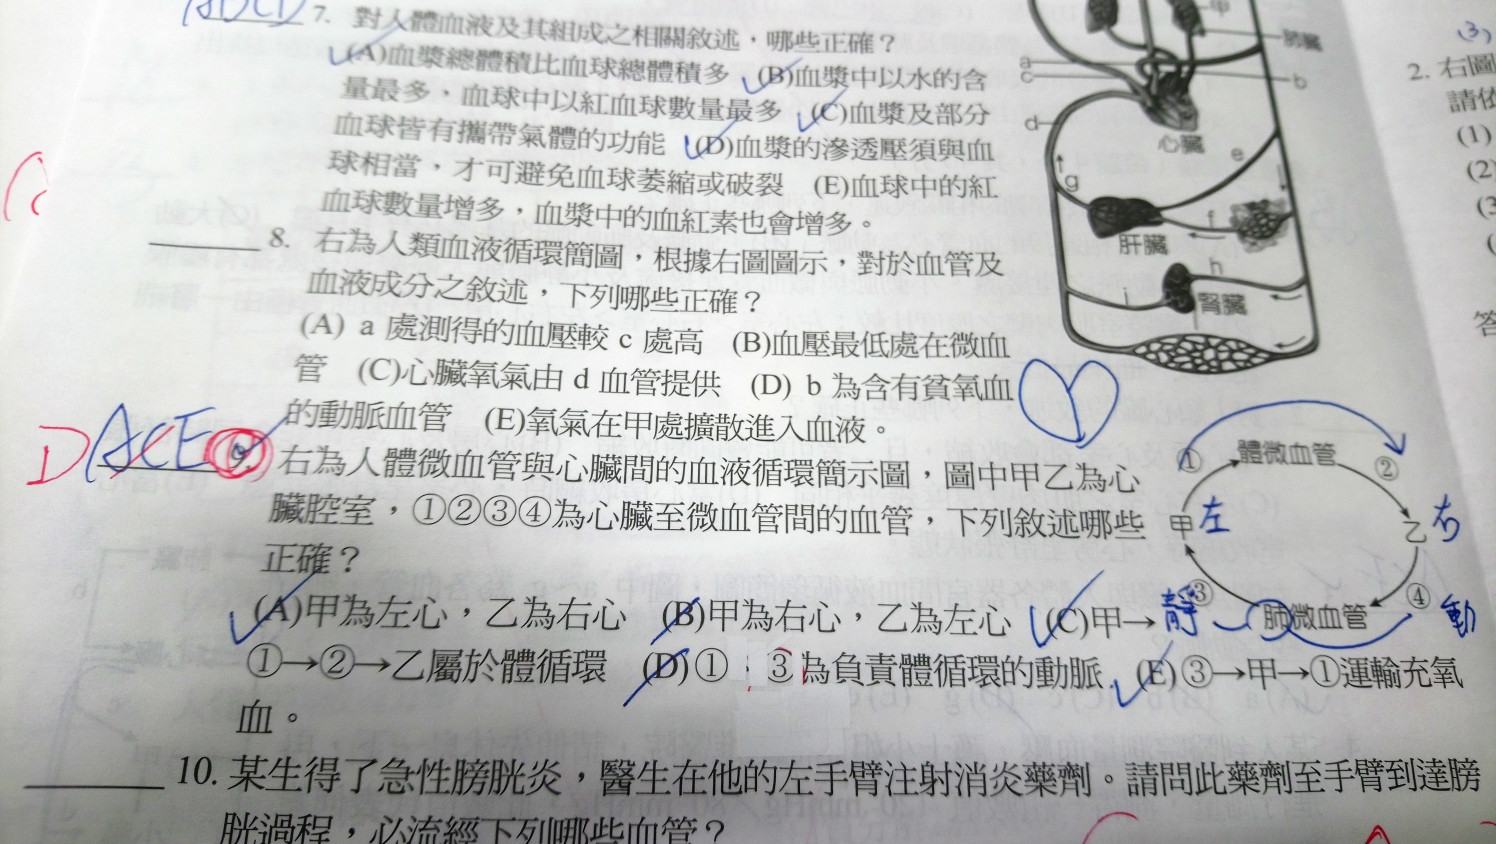 ABCD 7. 對人體血液及其組成之相關敘述，哪些正確？
(A)血漿總體積比血球總體積多 (B)血漿中以水的含
量最多、血球中以紅血球數量最多 (C)血漿及部分
血球皆有攜帶氣體的功能 (D)血漿的滲透壓須與血
球相當，才可避免血球萎縮或破裂 (E)血球中的紅
血球數量增多，血漿中的血紅素也會增多。
8. 右為人類血液循環簡圖，根據右圖圖示，對於血管及
血液成分之敘述，下列哪些正確？
(A) a 處測得的血壓較 c 處高 (B)血壓最低處在微血
管 (C)心臟氧氣由 d 血管提供 (D) b 為含有貧氧血
的動脈血管 (E)氧氣在甲處擴散進入血液。
D ACE 9. 右為人體微血管與心臟間的血液循環簡示圖，圖中甲乙為心
臟腔室，①②③④為心臟至微血管間的血管，下列敘述哪些
正確？
(A)甲為左心，乙為右心 (B)甲為右心，乙為左心 (C)甲→
①→②→乙屬於體循環 (D)①、③為負責體循環的動脈 (E)③→甲→①運輸充氧
血。
10. 某生得了急性膀胱炎，醫生在他的左手臂注射消炎藥劑。請問此藥劑至手臂到達膀
胱過程，必流經下列哪些血管？
甲
肺臟
a
c
b
d
心臟
e
g
f
肝臟
h
i
腎臟
① 體微血管 ②
甲 左
乙 右
③ 靜
肺微血管
④ 動
(3)
2. 右圖
請依
(1)
(2)
(3
(
答